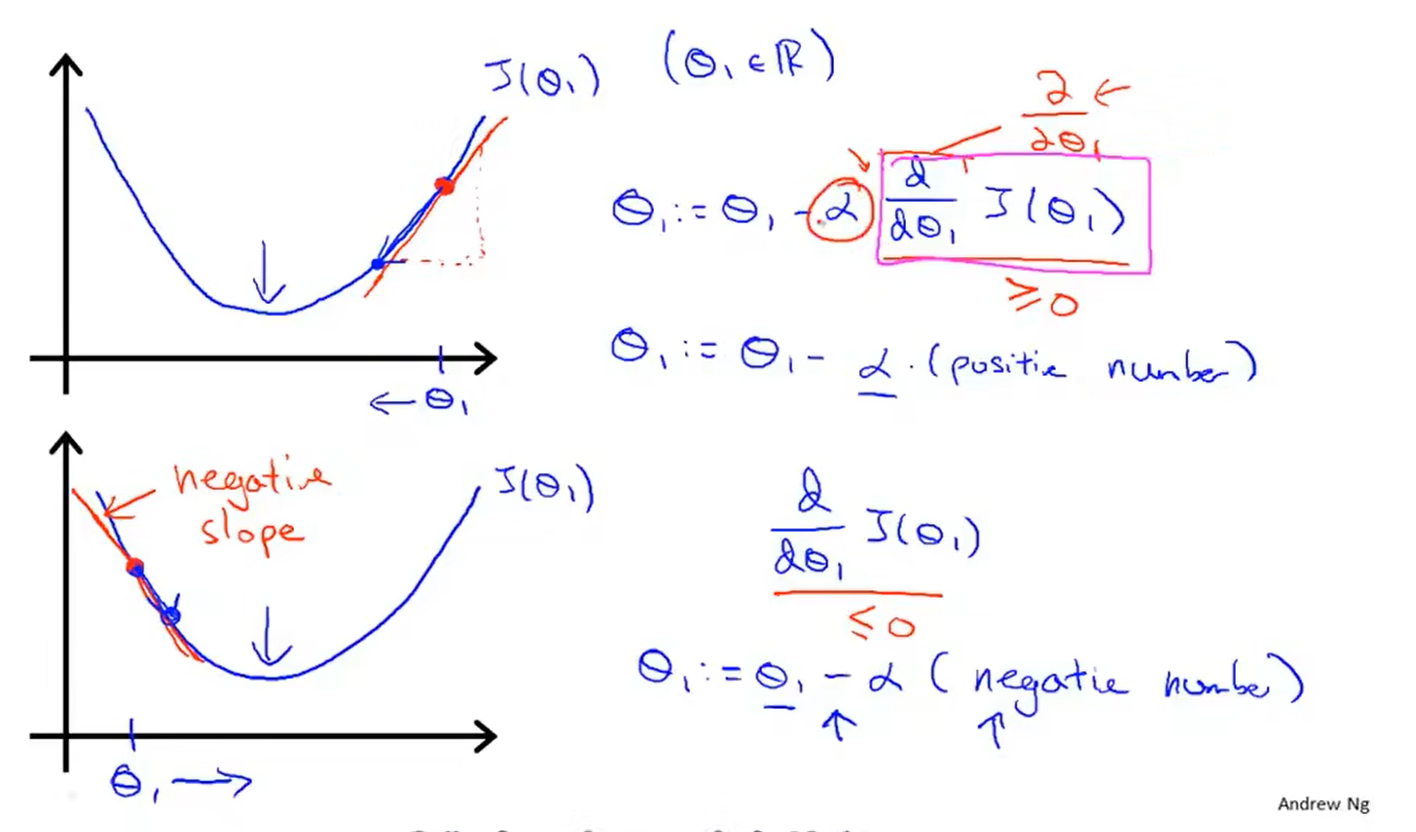 J(θ₁) (θ₁ ∈ ℝ)
∂ ←
∂θ₁
θ₁ := θ₁ - α d/dθ₁ J(θ₁)
≥ 0
θ₁ := θ₁ - α · (positie number)
← θ₁
negative
slope
J(θ₁)
d/dθ₁ J(θ₁)
≤ 0
θ₁ := θ₁ - α (negatie number)
θ₁ →
Andrew Ng